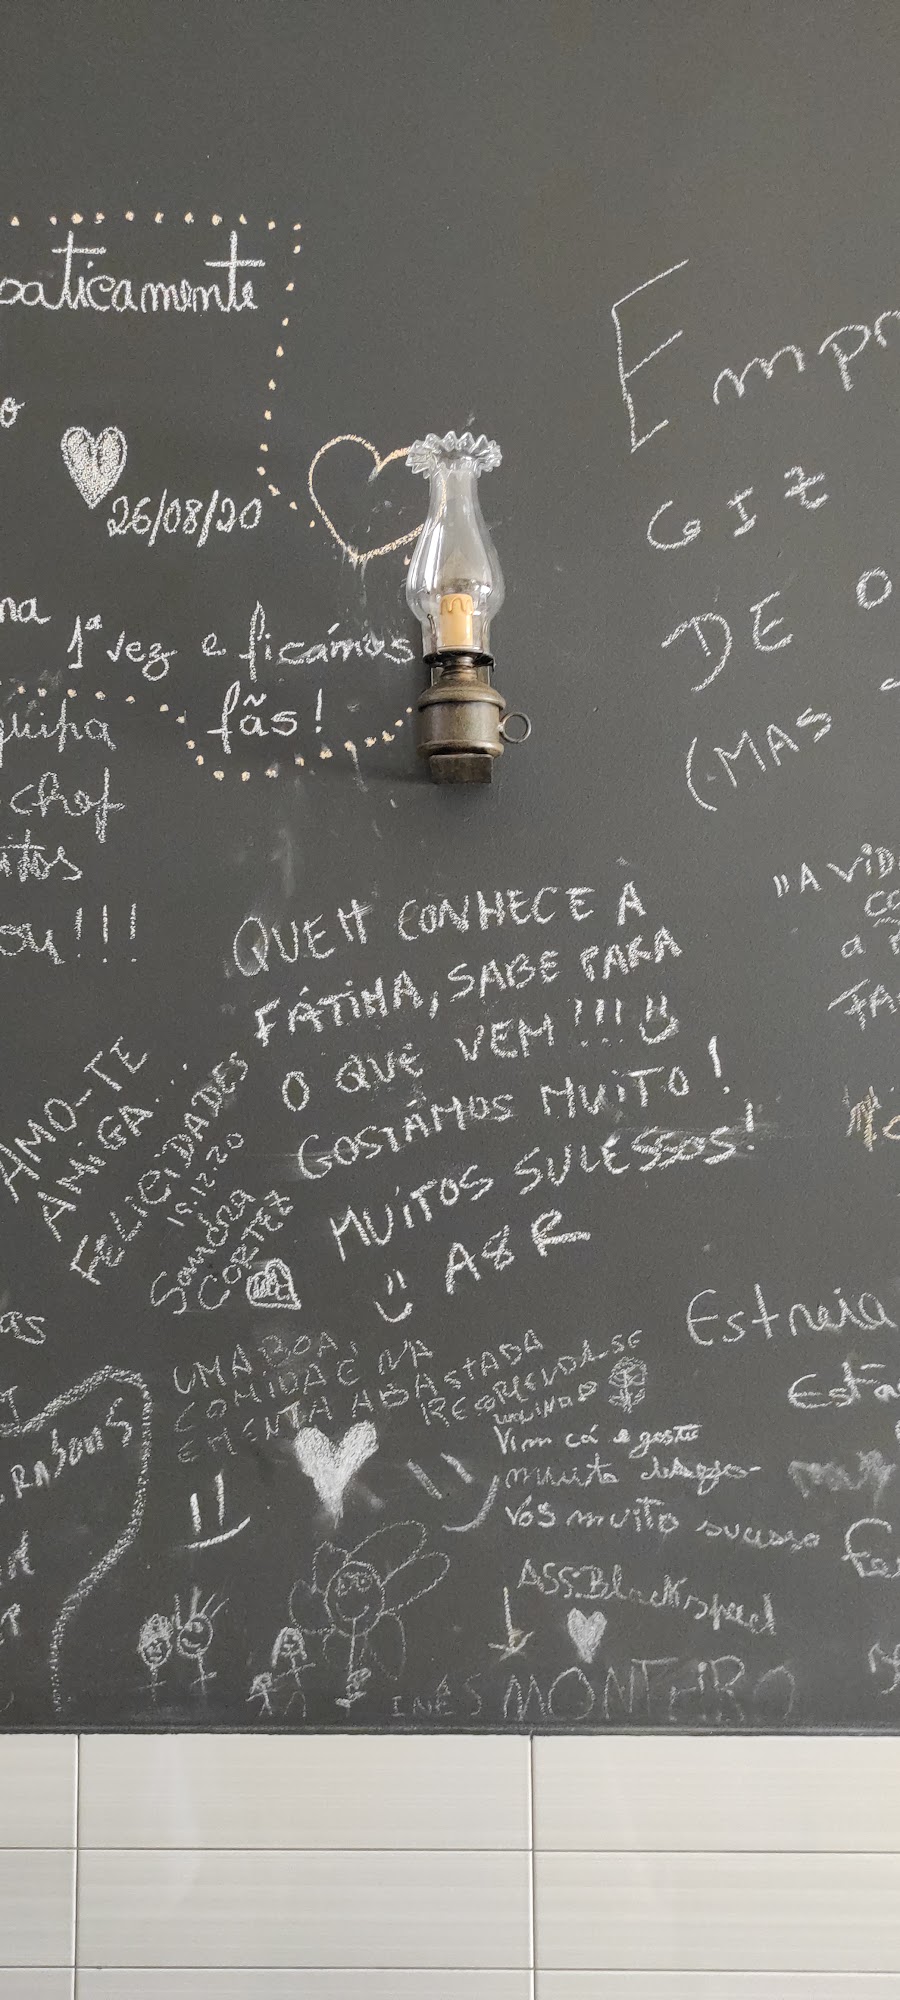 saticamente
26/08/20
na
1ª vez e ficámos
fãs!
chef
!!!
Empr
GIZ
DE O
(MAS
"A VID
a
QUEM CONHECE A
FÁTIMA, SABE PARA
O QUE VEM!!!
GOSTÁMOS MUITO!
MUITOS SULESSOS!
A&R
AMO-TE
AMIGA...
FELICIDADES
19.12.20
Sandra
CORTEZ
as
Estreia
UMA BOA
COMIDA É NA
EMENTA ABASTADA
RECOMENDA-SE
Vim cá e gostei
muito desejo-
vos muito sucesso
ASS. Blackspeed
INÊS MONTEIRO